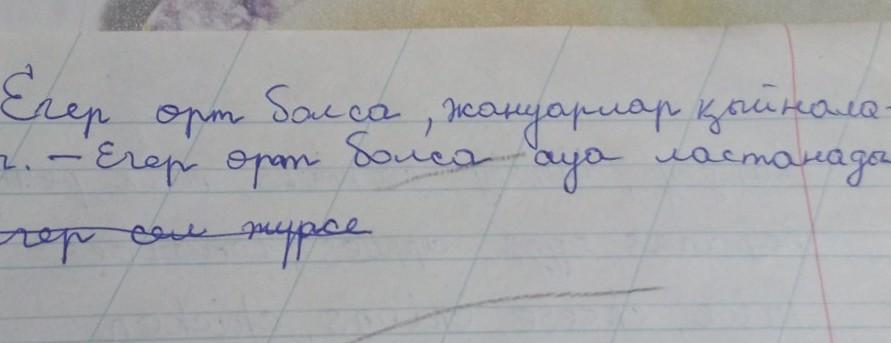 Егер өрт болса, жануарлар қыйнала
г. - Егер өрт болса ауа ластанады
гер сел жүрсе